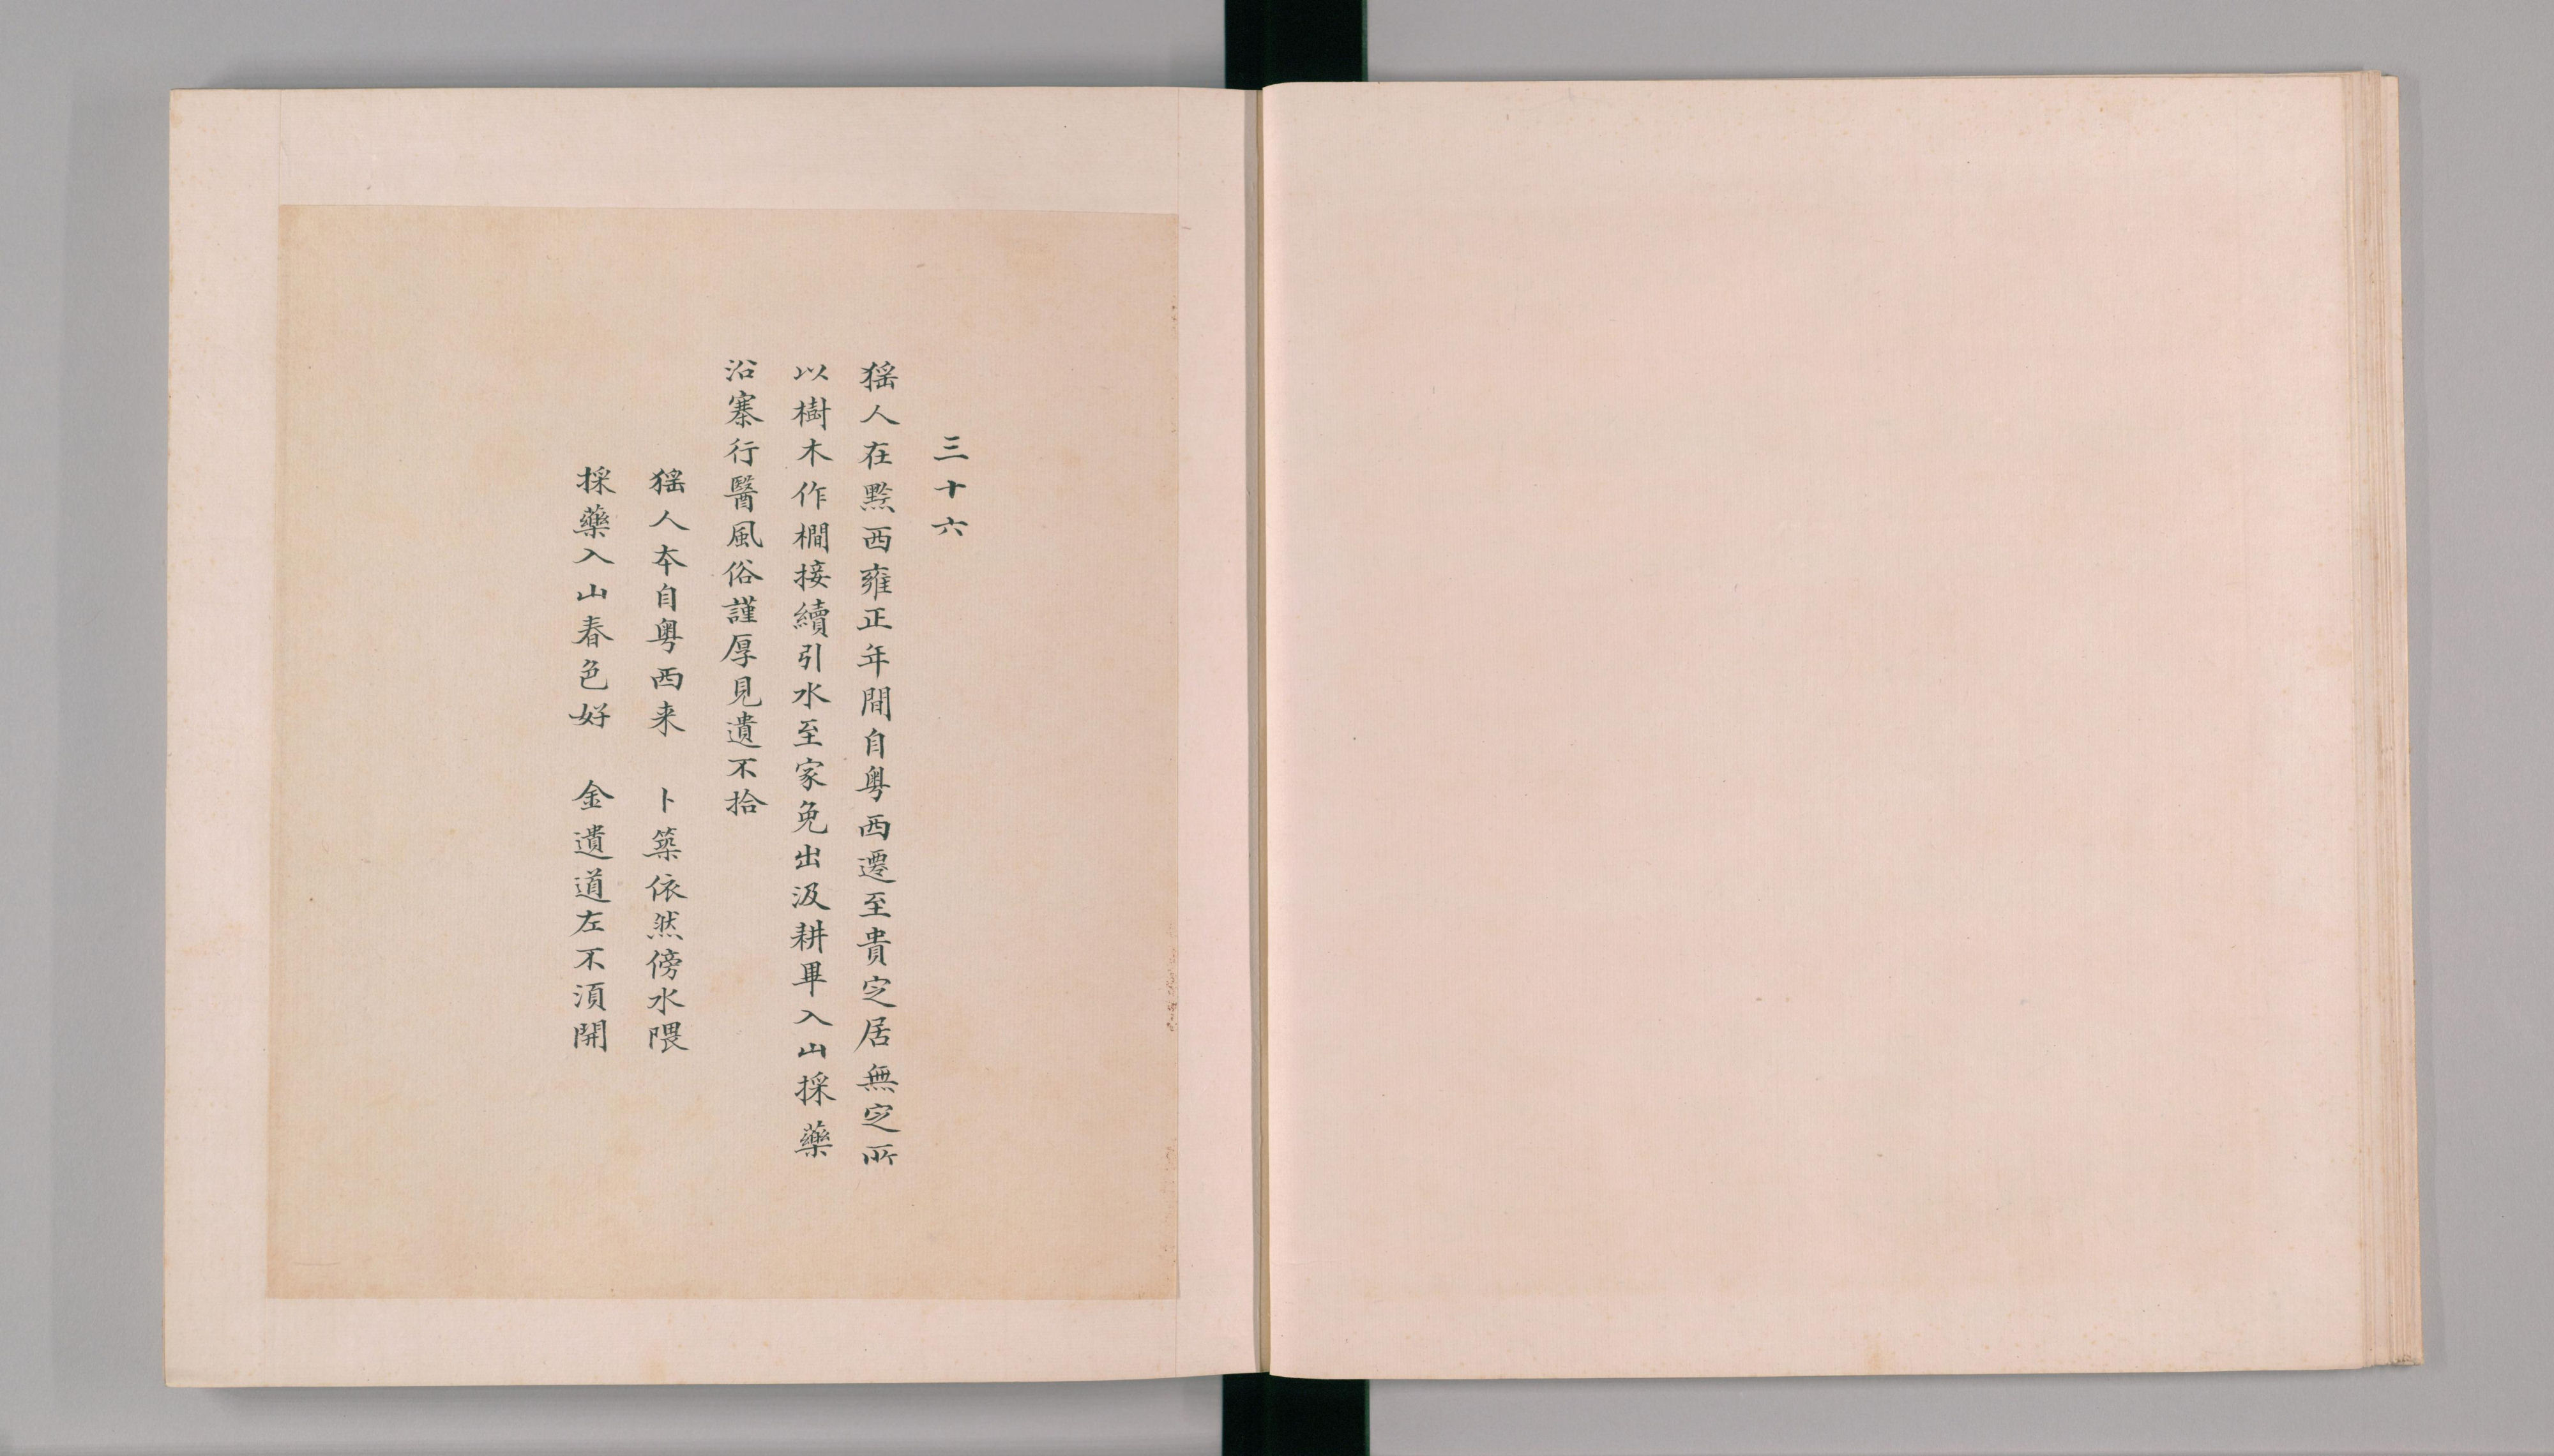 三十六
猺人在黔西雍正年間自粤西遷至貴定居無定所
以樹木作橺接續引水至家免出汲耕畢入山採藥
沿寨行醫風俗謹厚見遺不拾
猺人本自粤西来　卜築依然傍水隈
採藥入山春色好　金遺道左不須開